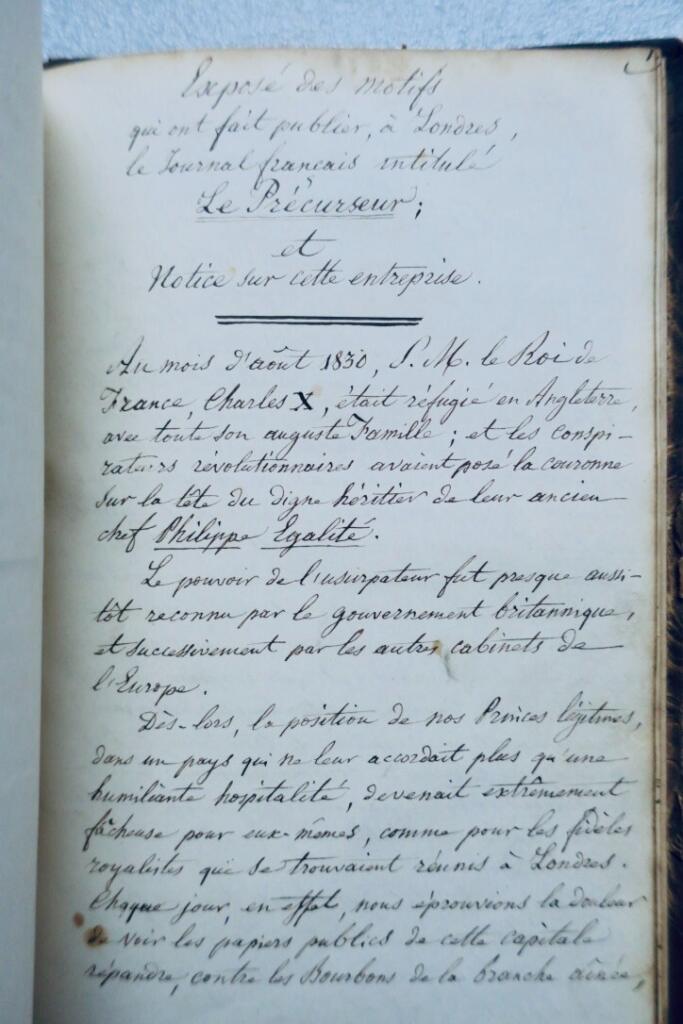 Exposé des motifs
qui ont fait publier, à Londres,
le Journal français intitulé
Le Précurseur;
et
Notice sur cette entreprise.
Au mois d'août 1830, S. M. le Roi de
France, Charles X, était réfugié en Angleterre,
avec toute son auguste Famille; et les conspi-
rateurs révolutionnaires avaient posé la couronne
sur la tête du digne héritier de leur ancien
chef Philippe Egalité.
Le pouvoir de l'usurpateur fut presque aussi-
tôt reconnu par le gouvernement britannique,
et successivement par les autres cabinets de
l'Europe.
Dès-lors, la position de nos Princes légitimes,
dans un pays qui ne leur accordait plus qu'une
humiliante hospitalité, devenait extrêmement
fâcheuse pour eux-mêmes, comme pour les fidèles
royalistes qui se trouvaient réunis à Londres.
Chaque jour, en effet, nous éprouvions la douleur
de voir les papiers publics de cette capitale
répandre, contre les Bourbons de la branche aînée,